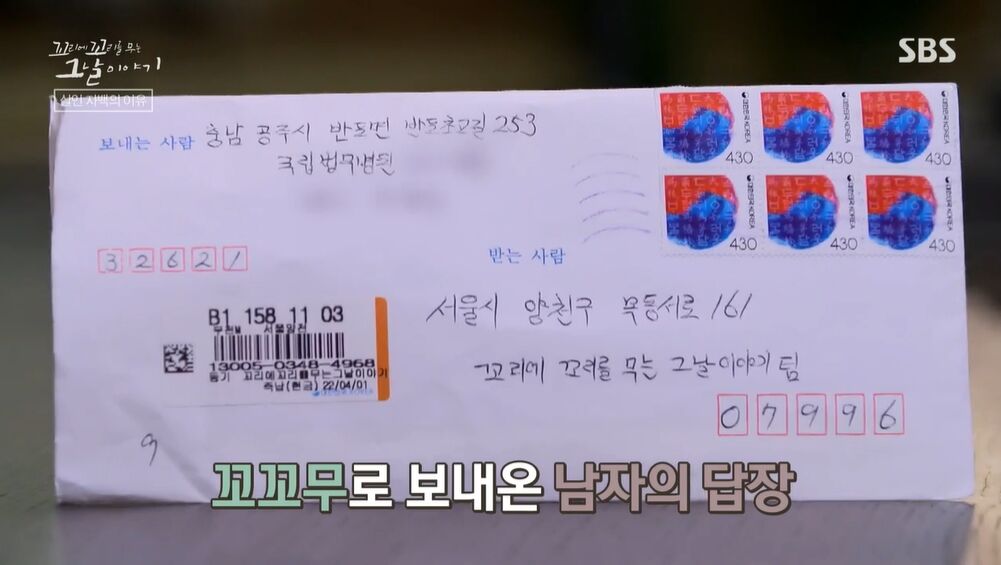 꼬리에 꼬리를 무는
그날 이야기
살인 자백의 이유
SBS
보내는 사람
충남 공주시 반포면 반포초교길 253
국립법무병원
32621
대한민국 KOREA
430
대한민국 KOREA
430
대한민국 KOREA
430
대한민국 KOREA
430
대한민국 KOREA
430
대한민국 KOREA
430
받는 사람
서울시 양천구 목동서로 161
꼬리에 꼬리를 무는 그날이야기 팀
07996
B1 158 11 03
서울양천
13005-0348-4968
등기 꼬리에꼬리를무는그날이야기
즉납(현금) 22/04/01
대한민국 KOREA
꼬꼬무로 보내온 남자의 답장